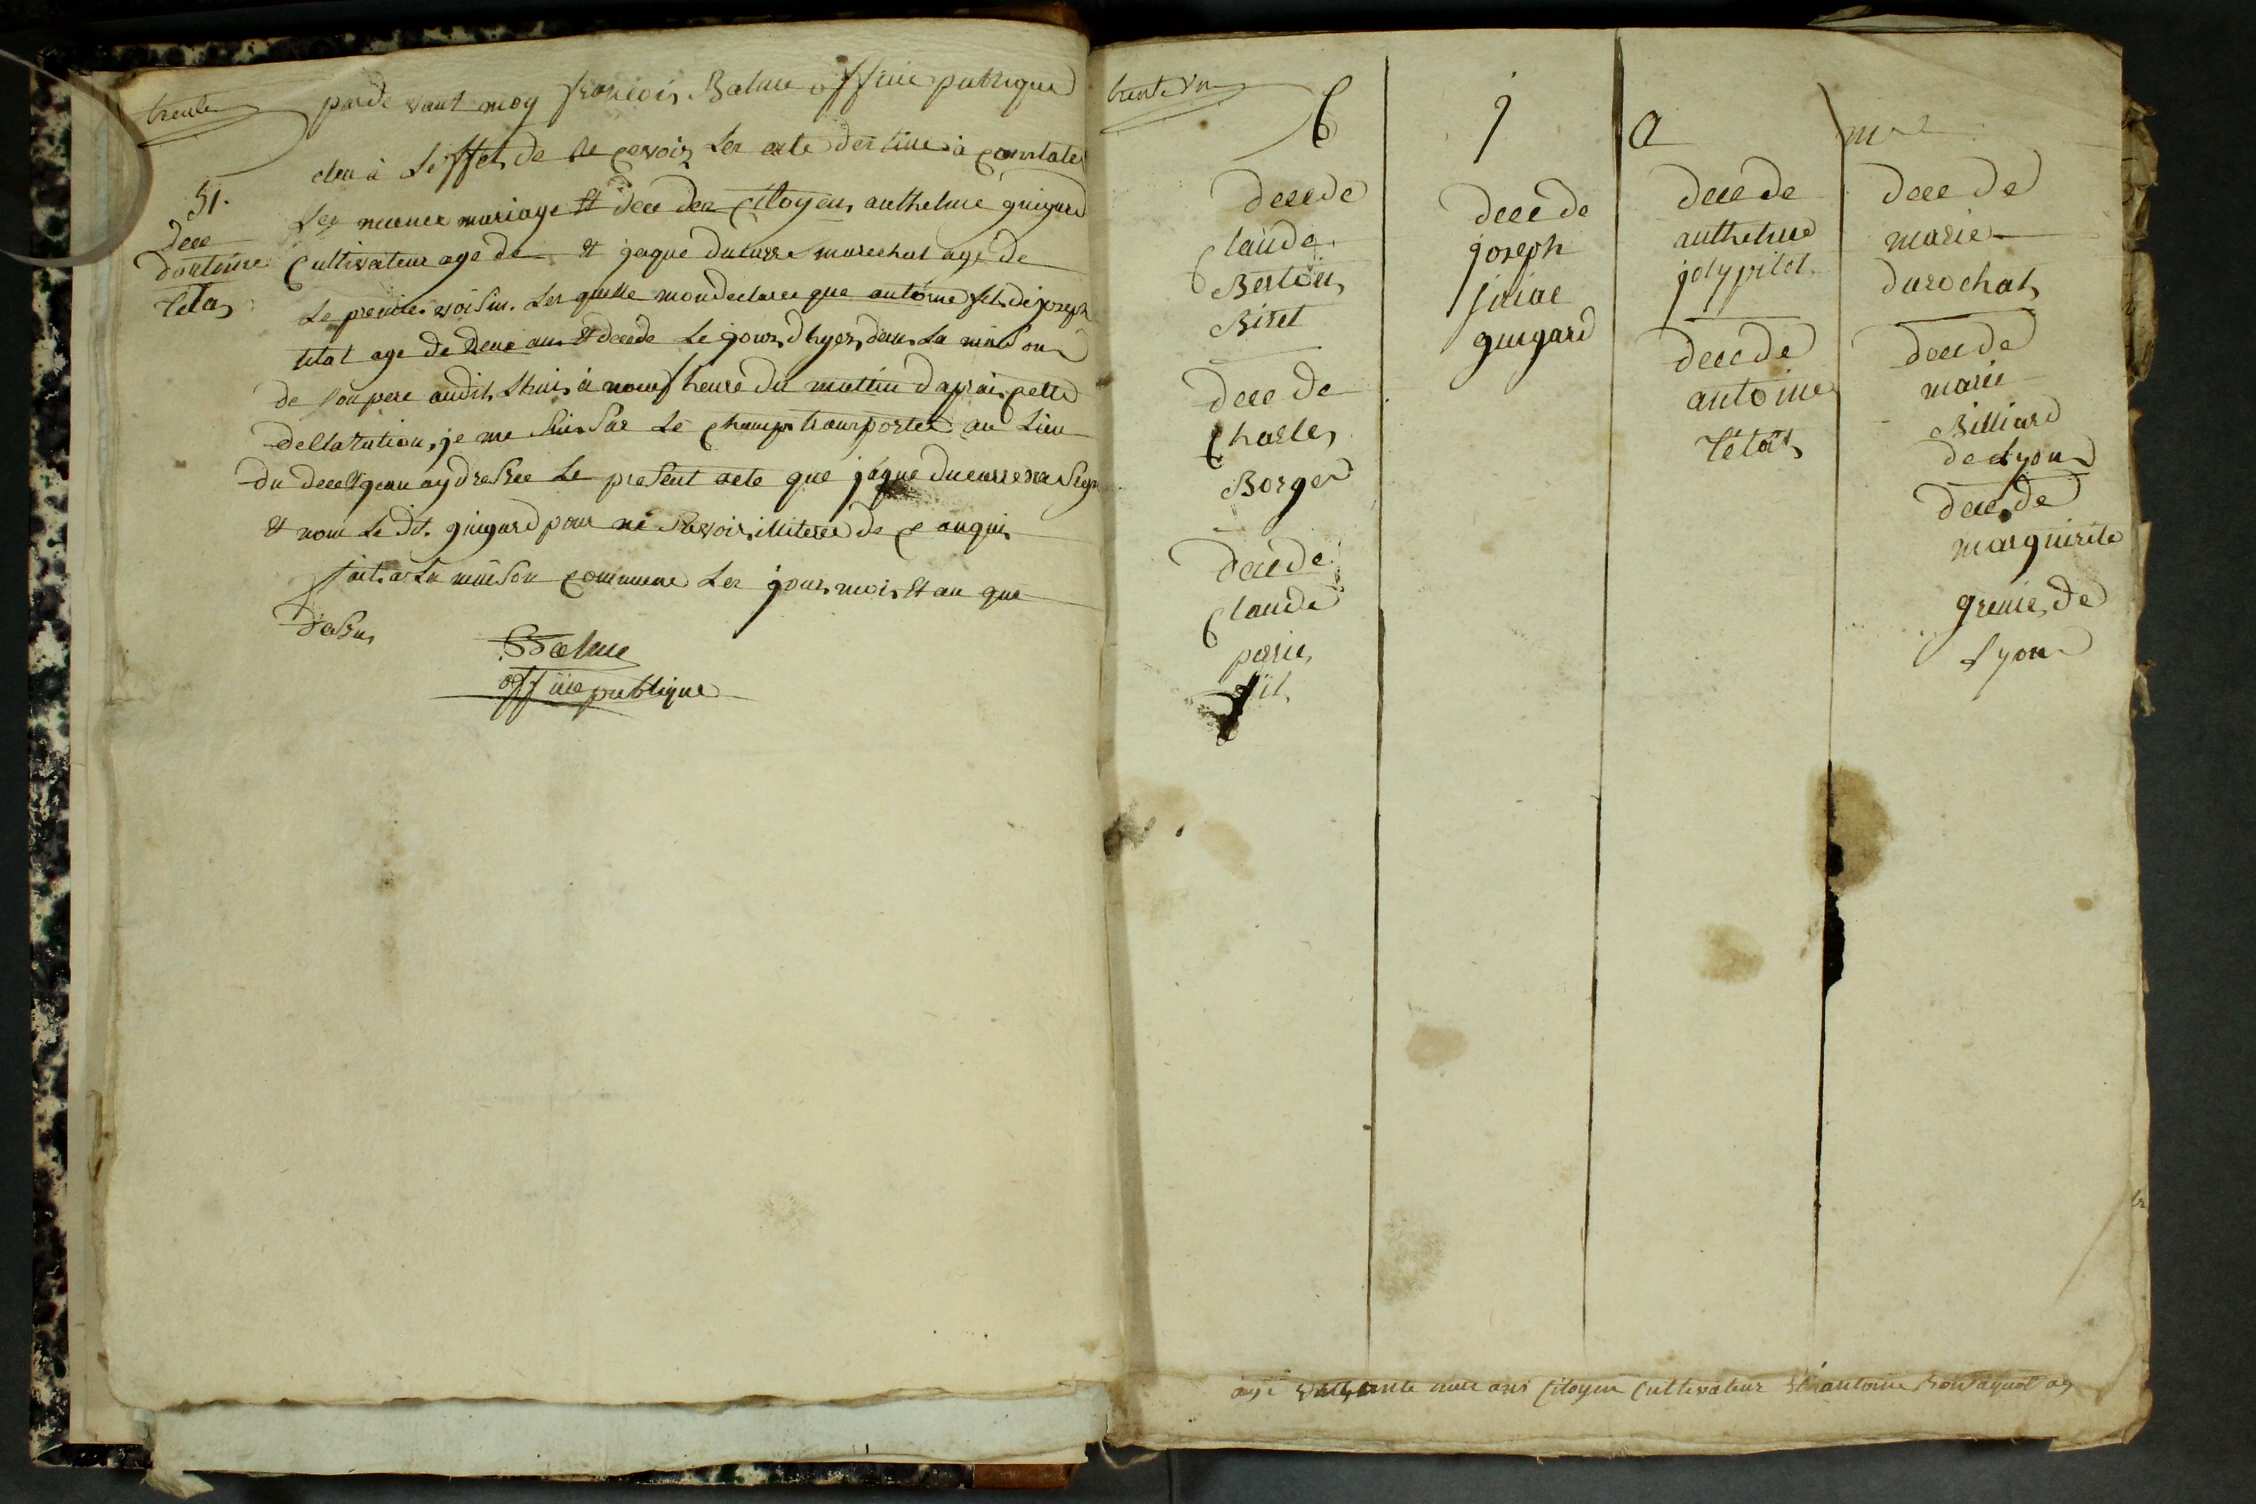 trente
par de vant moy francois Balme officie publique
eleu a leffet de re cevoir les acte destine a constate
51.
dece
dantoine
tetas
les nance mariage et dece des citoyens anthelme guigard
cultivateur age de et jaque ducurre marechal age de
le premier voisin. les quelle mon declaree que antoine fils de joseph
tetat age de deux ans et decede le jours dhyer dans la maison
de son pere audit lhuis a neuf heure du mattin daprai cette
dellaration, je me suis sur le champs transporter au lieu
du dece et jean ay dressee le present acte que jaque ducurre
et non le dit guigard pour ne savoir illiteree de ce anquis
fait a la maison commune les jour mois et an que
dessus
Balme
officie publique
trente un
C
decede
claude
Bertoin
Biret
decede
charles
Borger
decede
claude
j
decede
joseph
guigard
a
decede
anthelme
joly pilot
decede
antoine
tetas
m
decede
marie
durochat
decede
marie
Billiard
de lyon
decede
marguirite
grenie de
lyon
age ans citoyen cultivateur et antoine